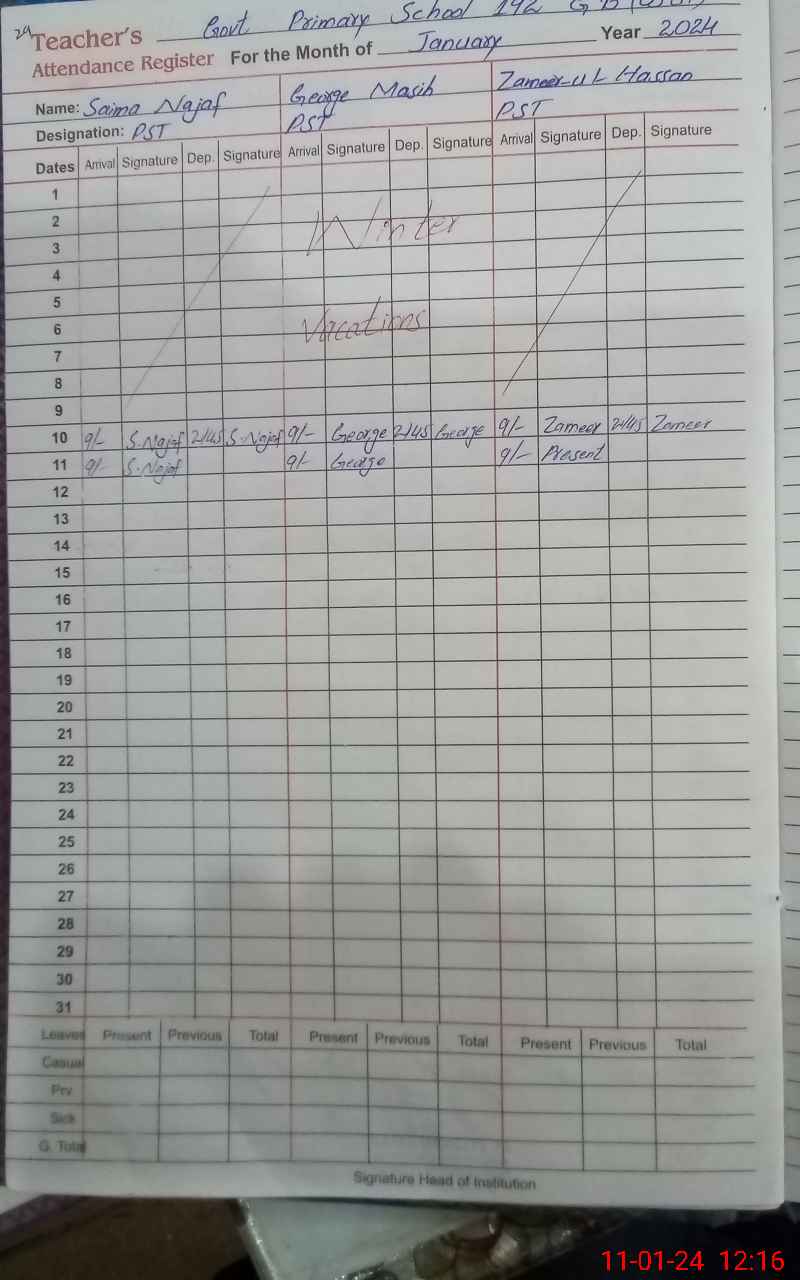 24
Teacher's Govt Primary School 192 G B
Attendance Register For the Month of January Year 2024
Name: Saima Najaf George Masih Zameer-ul Hassan
Designation: PST PST PST
Dates Arrival Signature Dep. Signature Arrival Signature Dep. Signature Arrival Signature Dep. Signature
1
2 Winter
3
4
5
6 Vacations
7
8
9
10 9/- S.Najaf 2/45 S.Najaf 9/- George 2/45 George 9/- Zameer 2/45 Zameer
11 9/- S.Najaf 9/- George 9/- Present
12
13
14
15
16
17
18
19
20
21
22
23
24
25
26
27
28
29
30
31
Leaves Present Previous Total Present Previous Total Present Previous Total
Casual
Prv
Sick
G. Total
Signature Head of Institution
11-01-24 12:16